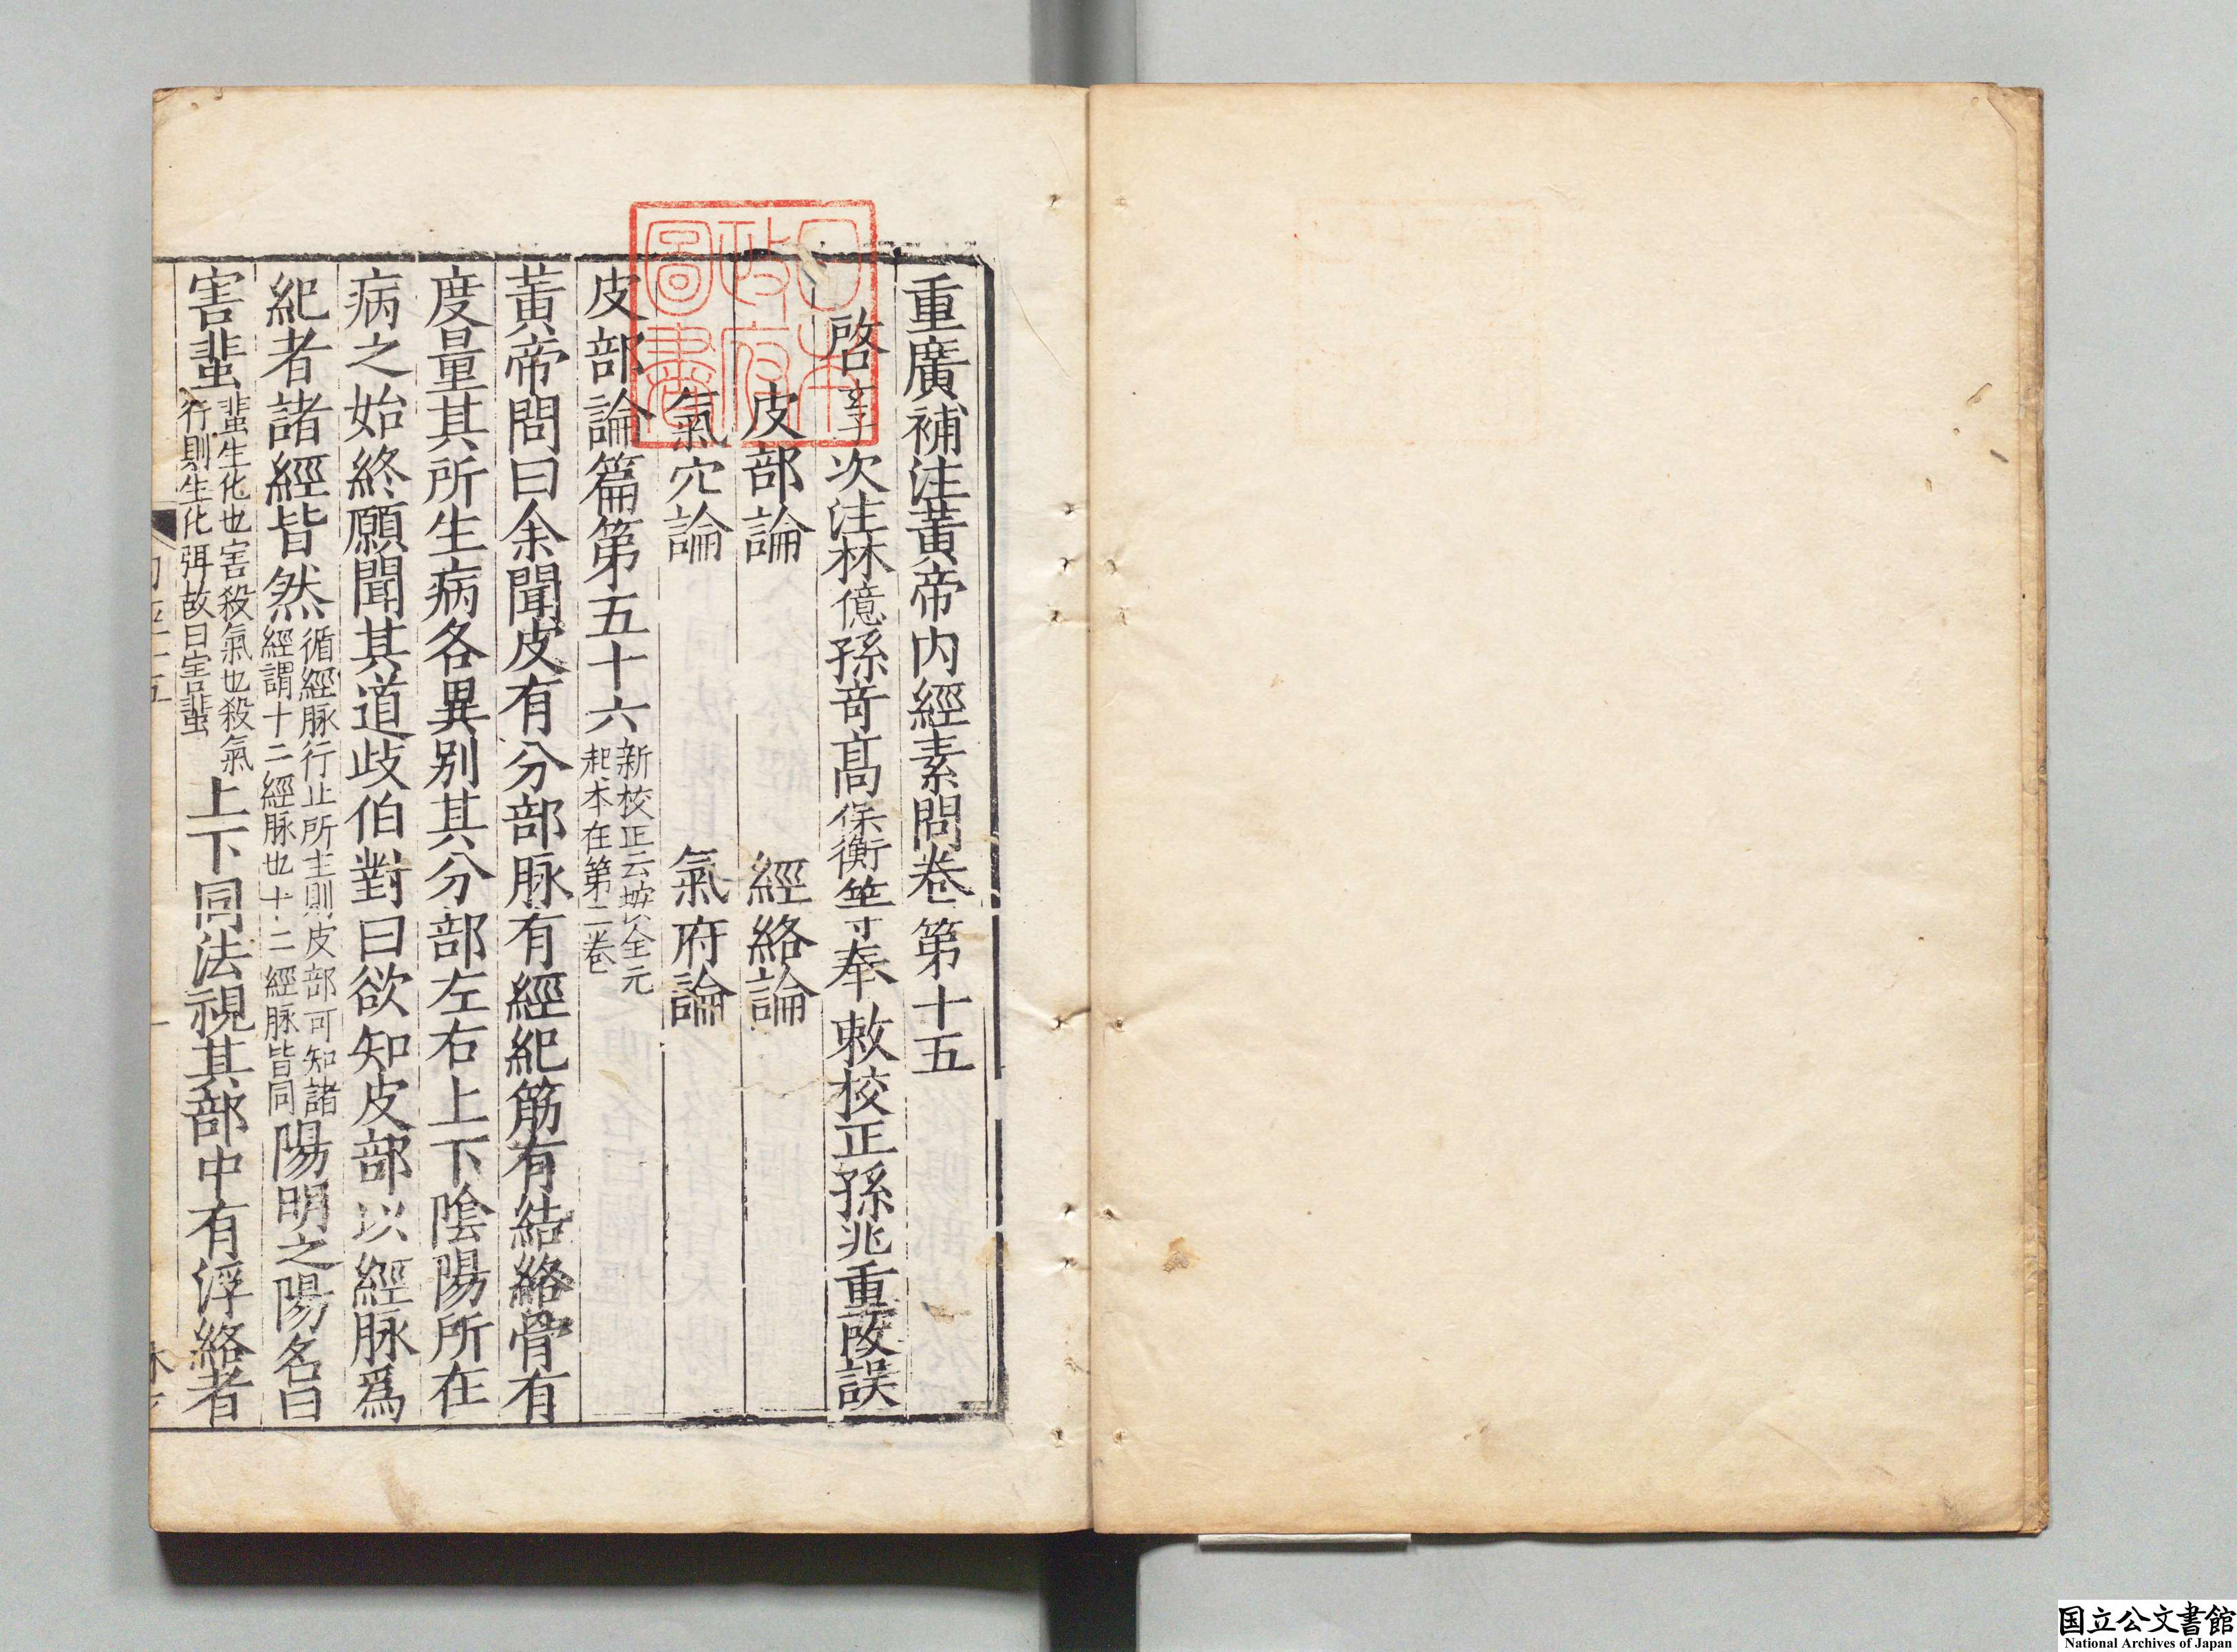 重廣補注黃帝内經素問卷第十五
啓玄子次注林億孫奇髙保衡等奉敕校正孫兆重改誤
皮部論　經絡論
氣穴論　氣府論
皮部論篇第五十六新校正云按全元
起本在第二卷
黃帝問曰余聞皮有分部脉有經紀筋有結絡骨有
度量其所生病各異别其分部左右上下陰陽所在
病之始終願聞其道歧伯對曰欲知皮部以經脉爲
紀者諸經皆然循經脉行止所主則皮部可知諸
經謂十二經脉也十二經脉皆同陽明之陽名曰
害蜚蜚生化也害殺氣也殺氣
行則生化弭故曰害蜚上下同法視其部中有浮絡者
日本
政府
圖書
国立公文書館
National Archives of Japan